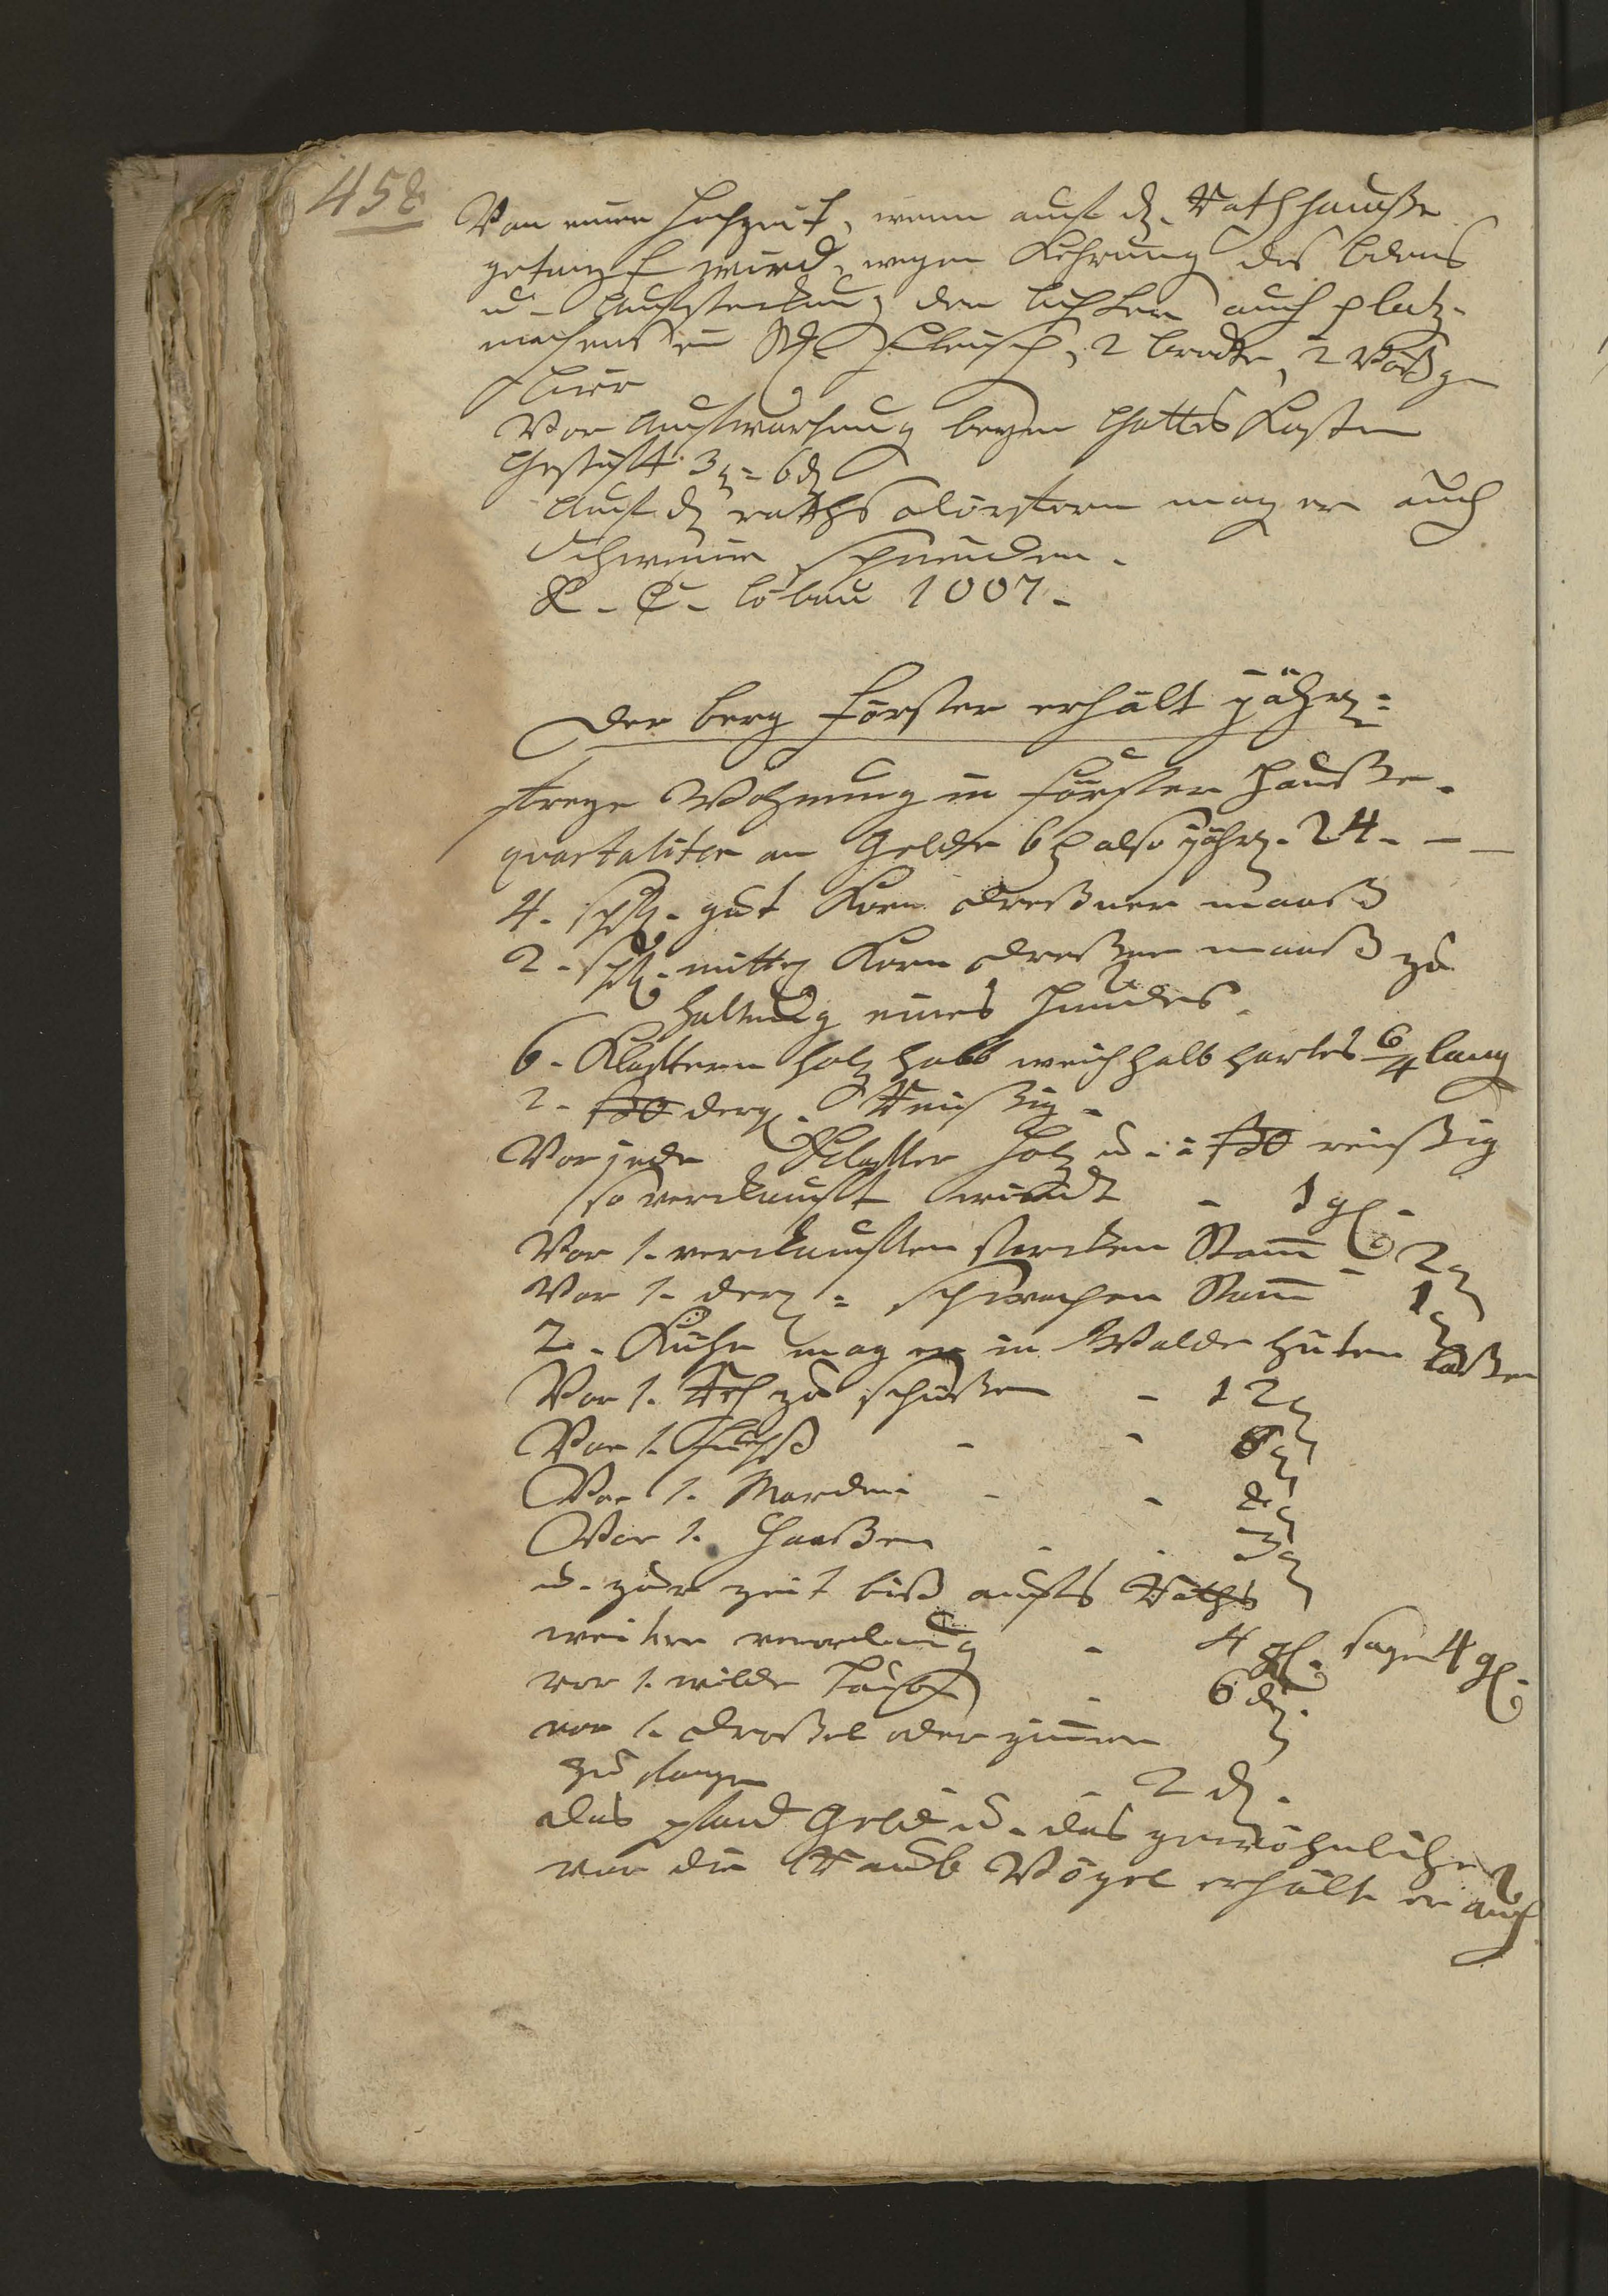 458
Von einer Hochzeit, wenn auf d. Rathhauße
getanzt wird, wegen Kehrung des bodens
u. Aufsteckung der lichter auch platz
machens ein Fleisch, 2 brodte, 2
bier
Vor Aufwarthung beym Gottes Kasten
Geschäft 3 g 6 d
Auf d raths dörffern mag er auch
Schweine schneiden.
R. C. löbau 1007.
Der berg förster erhält jährl:
freye Wohnung in förster Hauße.
quartaliter an Gelde 6 also jährl. 24. — —
4. schfl. gut Korn dreßner maaß
2. schfl. mittel Korn dreßner maaß zu
Haltung eines Hundes.
6. Klaftern holz halb weich halb hartes 6/4 lang
2. ßo dergl. Reißig.
Vor jede Klafter Holz u. ßo reißig
so verkauft wird - 1 gl.
Vor 1. verkauften starcken Stam̅ - 2 g
Vor 1. dergl: schwachen Stam̅ - 1 g
2. Kühe mag er in Walde hüten laßen
Vor 1. Reh zu schüßen - 12 g
Vor 1. Fuchß - - 8 g
Vor 1. Marder - - 8 g
Vor 1. Haaßen - - 3 g
u. zur zeit biß aufs Raths
weitere verordnung - 4 gl. sage 4 gl.
vor 1. wilde Taube - 6 d.
vor 1. droßel oder ziemer
zu fangen - 2 d.
das pfand Geld u. das gewöhnliche
vor die Raub Vögel erhält er auch